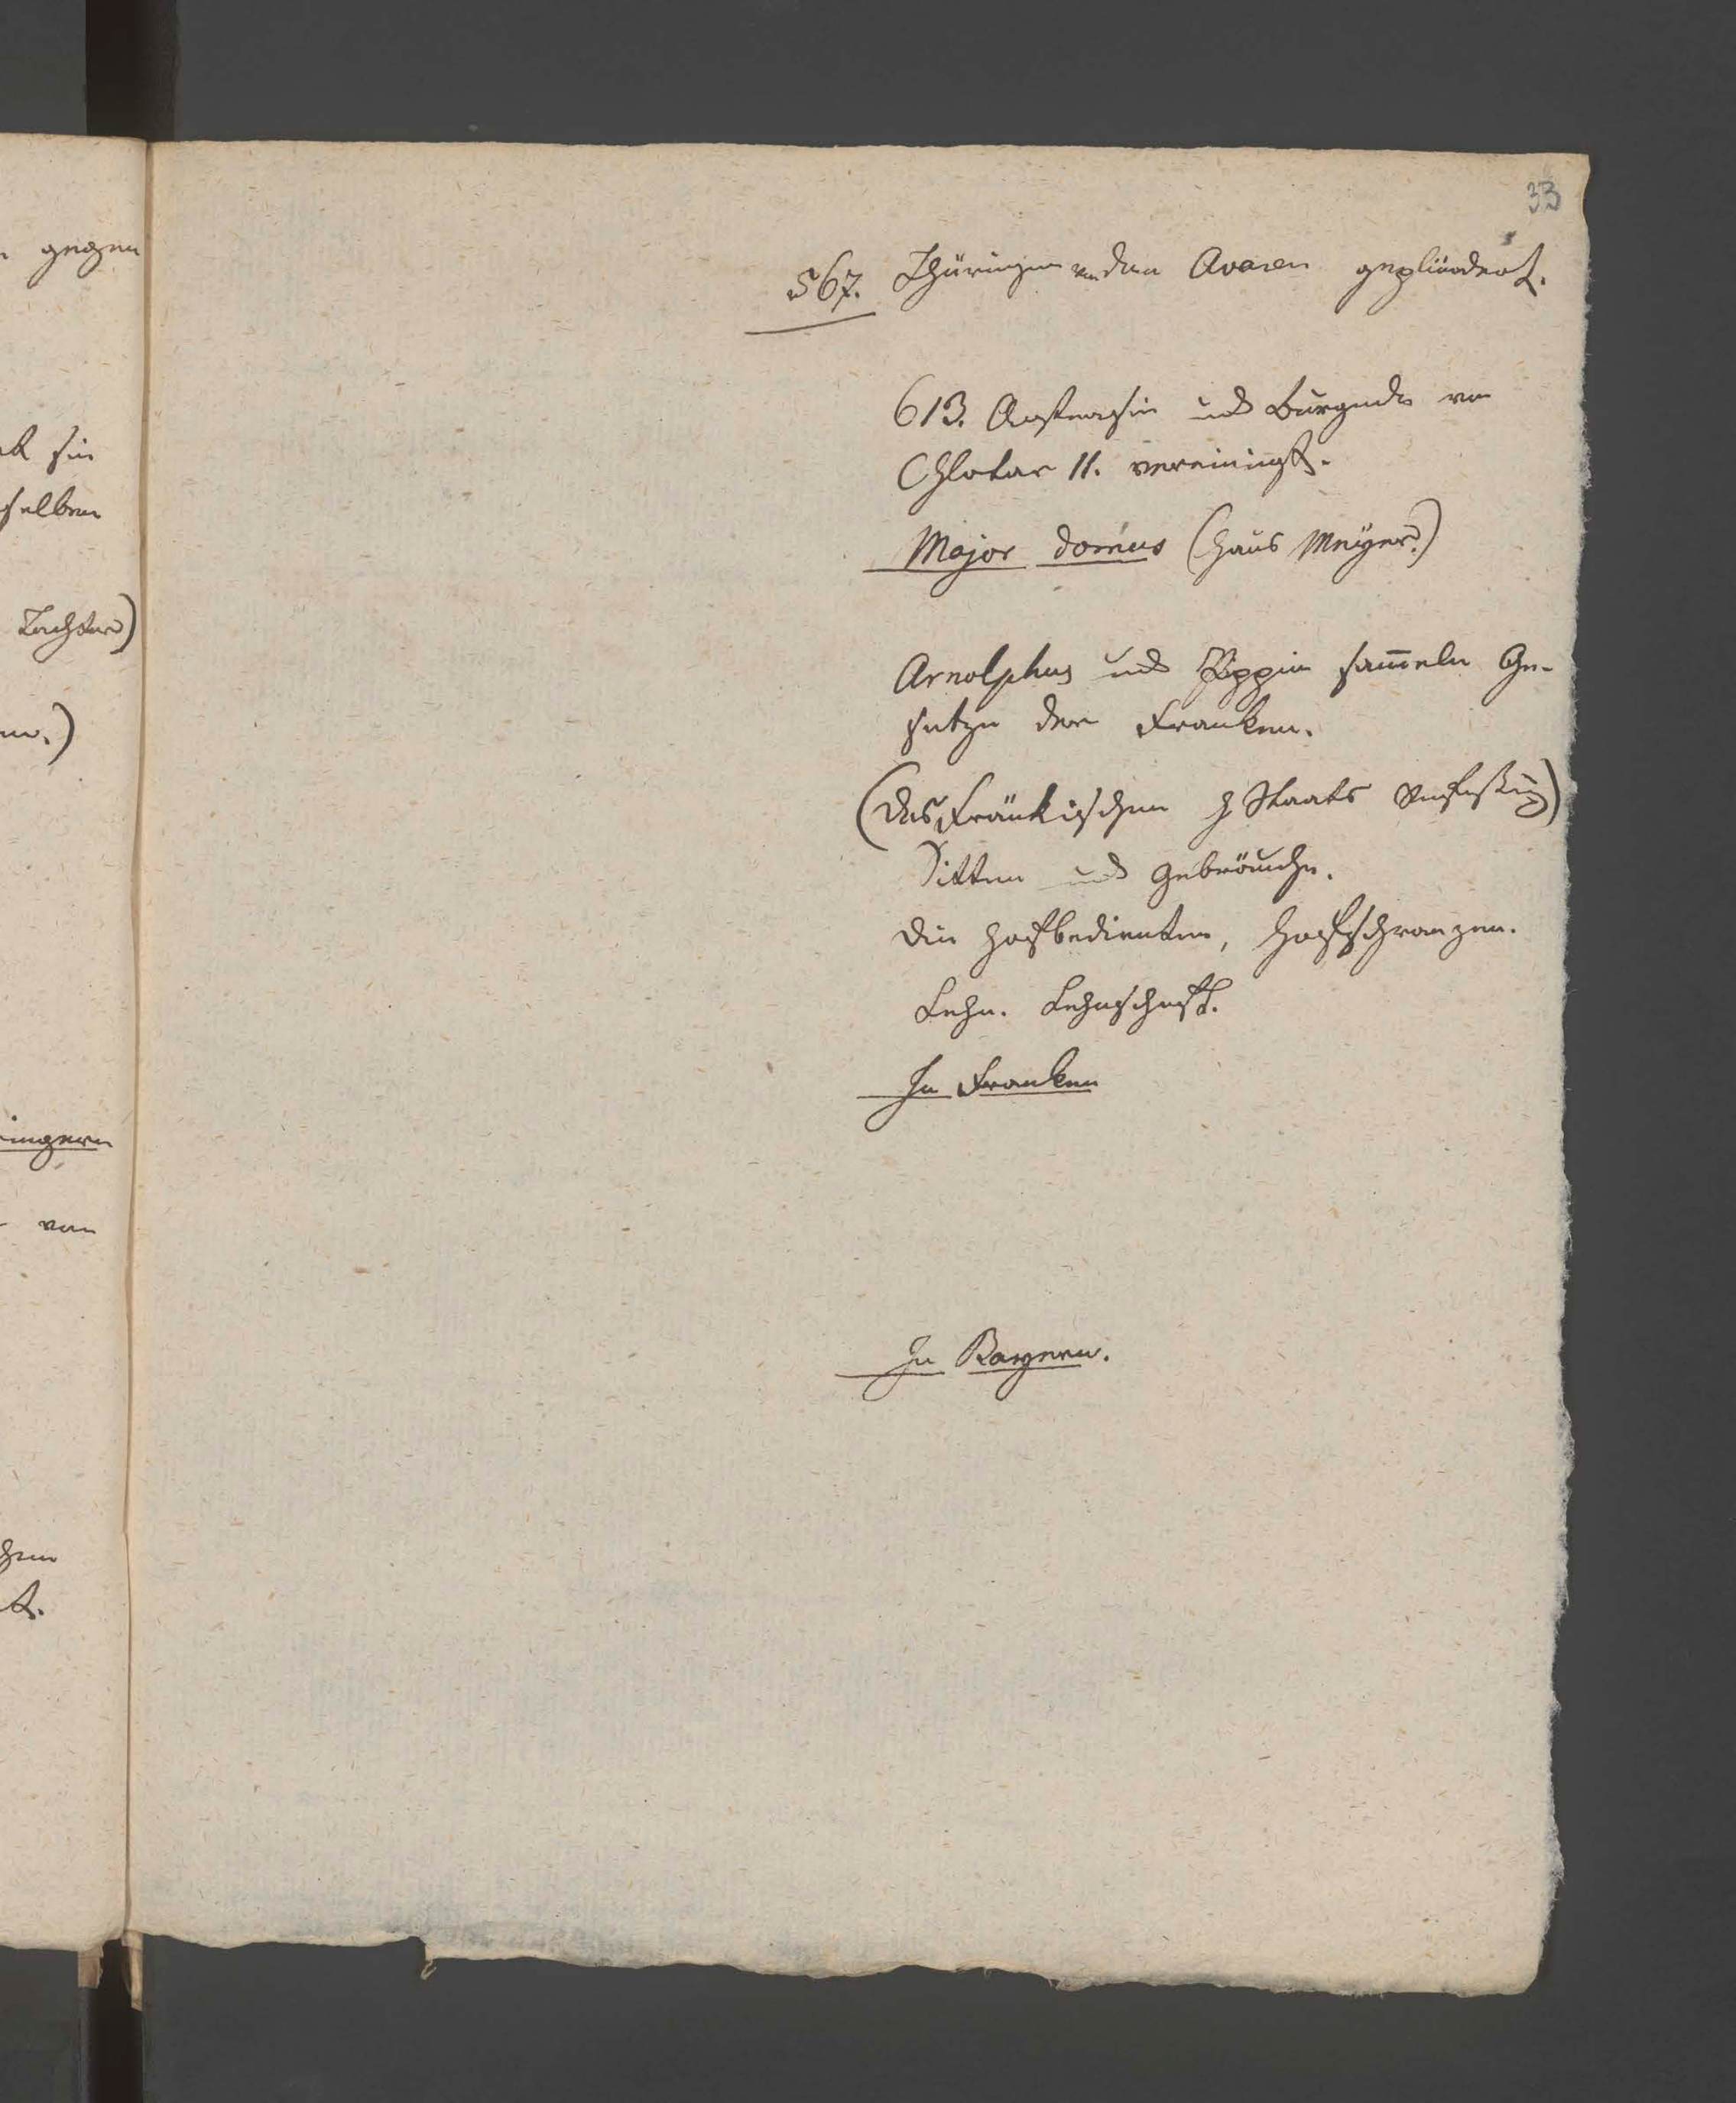 33
gegen
567. Thüringen v. den Avaren geplündert.
613. Austrasien und Burgund von
Chlotar II. vereinigt.
sie
selben
Major domus (Haus Meÿer.)
Tochter)
Arnolphus und Pippin sam̄eln Ge-
setze der Franken.
en.)
(des Fränkischen Staats Verfaßung)
Sitten und Gebräuche.
die Hofbedienten, Hofschranzen.
Lehn. Lehnschaft.
In Franken
ringern
von
In Bayern.
chen
t.